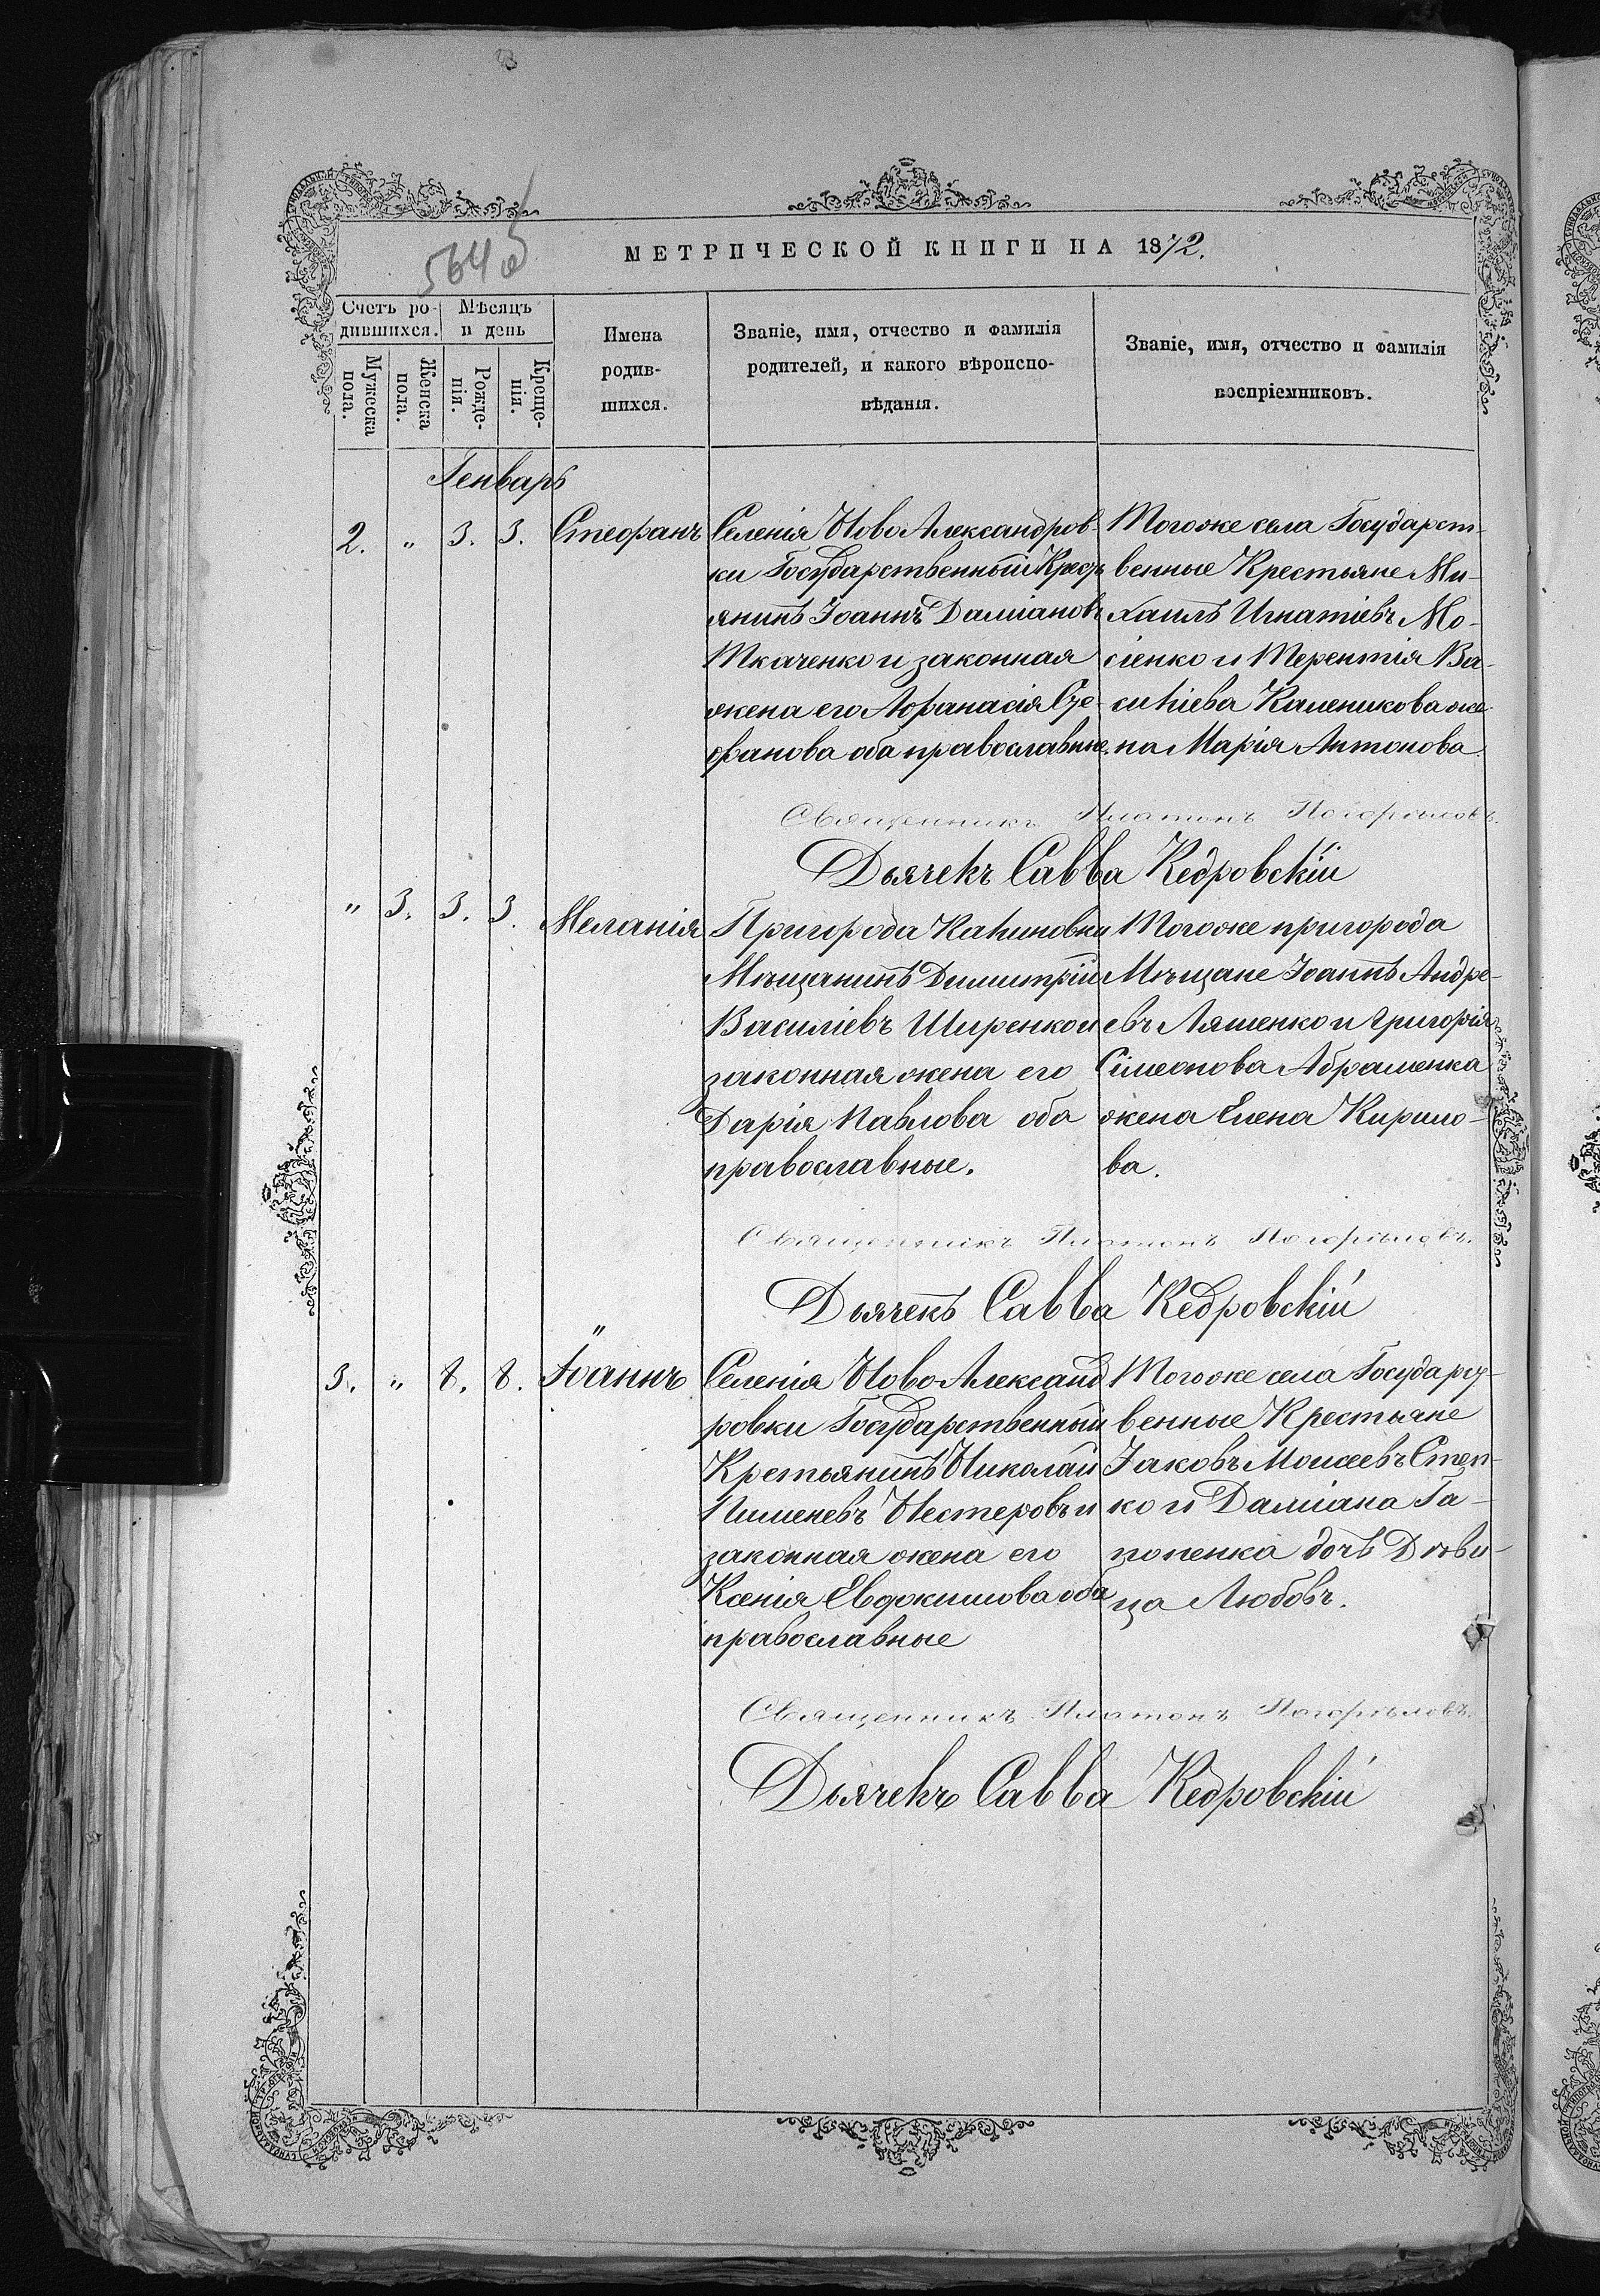 564 об
МЕТРИЧЕСКОЙ КНИГИ НА 1872.
Счетъ ро-
дившихся.
Мѣсяцъ
и день
Мужеска
пола.
Женска
пола.
Рожде-
нія.
Креще-
нія.
Имена
родив-
шихся.
Званіе, имя, отчество и фамилія
родителей, и какого вѣроиспо-
вѣданія.
Званіе, имя, отчество и фамилія
воспріемниковъ.
Генварь
2. " 3. 3. Стефанъ
Селенія НовоАлександров-
ки Государственный Крест
янинъ Іоаннъ Даміановъ
Ткаченко и законная
жена его Афанасія Сте-
фанова оба православные.
Тогоже села Государст-
венные Крестьяне Ми-
хаилъ Игнатіевъ Мо-
сіенко и Терентія Ва-
силіева Калениковаже-
на Марія Антонова
Священникъ Платонъ Погорѣловъ.
Дьячекъ Савва Кедровскій
" 3. 3. 3. Меланія
Пригорода Калиновки
Мѣщанинъ Димитрій
Василіевъ Ширенко и
законная жена его
Дарія Павлова оба
православные.
Тогоже пригорода
Мѣщане Іоаннъ Андре-
евъ Ляшенко и Григорія
Сімеонова Абраменка
жена Елена Кирило-
ва.
Священникъ Платонъ Погорѣловъ.
Дьячекъ Савва Кедровскій
3. " 8. 8. Іоаннъ
Селенія НовоАлександ
ровки Государственный
Кретьянинъ Николай
Пименевъ Нестеровъ и
законная жена его
Ксенія Евдокимова оба
православные
Тогоже села Государст-
венные Крестьяне
Іаковъ Моисеевъ Степ-
ко и Даміана Га-
поненка дочь Дѣви-
ца Любовъ.
Священникъ Платонъ Погорѣловъ.
Дьячекъ Савва Кедровскій